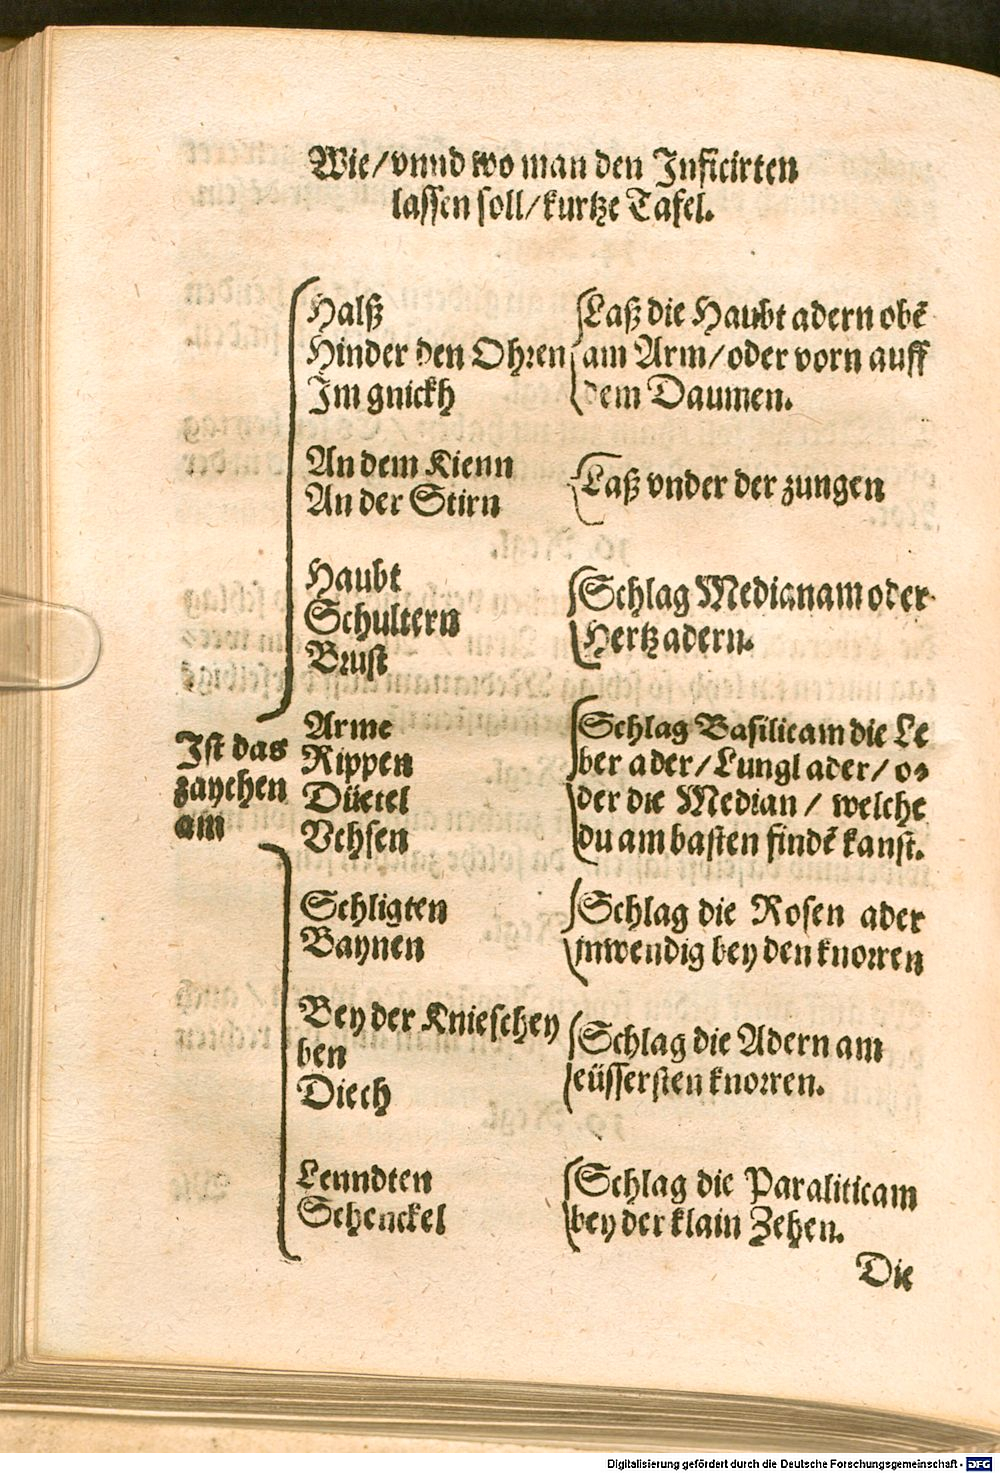 Wie/vnnd wo man den Inficirten
lassen soll/kurtze Tafel.
Halß
Hinder den Ohren
Im gnickh
Laß die Haubt adern obẽ
am Arm/oder vorn auff
dem Daumen.
An dem Kienn
An der Stirn
Laß vnder der zungen
Haubt
Schultern
Brust
Schlag Medianam oder
Hertz adern.
Ist das
zaychen
am
Arme
Rippen
Düetel
Vchsen
Schlag Basilicam die Le
ber ader/Lungl ader/o⸗
der die Median/ welche
du am basten findẽ kanst.
Schligten
Baynen
Schlag die Rosen ader
inwendig bey den knorren
Bey der Knieschey
ben
Diech
Schlag die Adern am
eüssersten knorren.
Lenndten
Schenckel
Schlag die Paraliticam
bey der klain Zehen.
Die
Digitalisierung gefördert durch die Deutsche Forschungsgemeinschaft - DFG